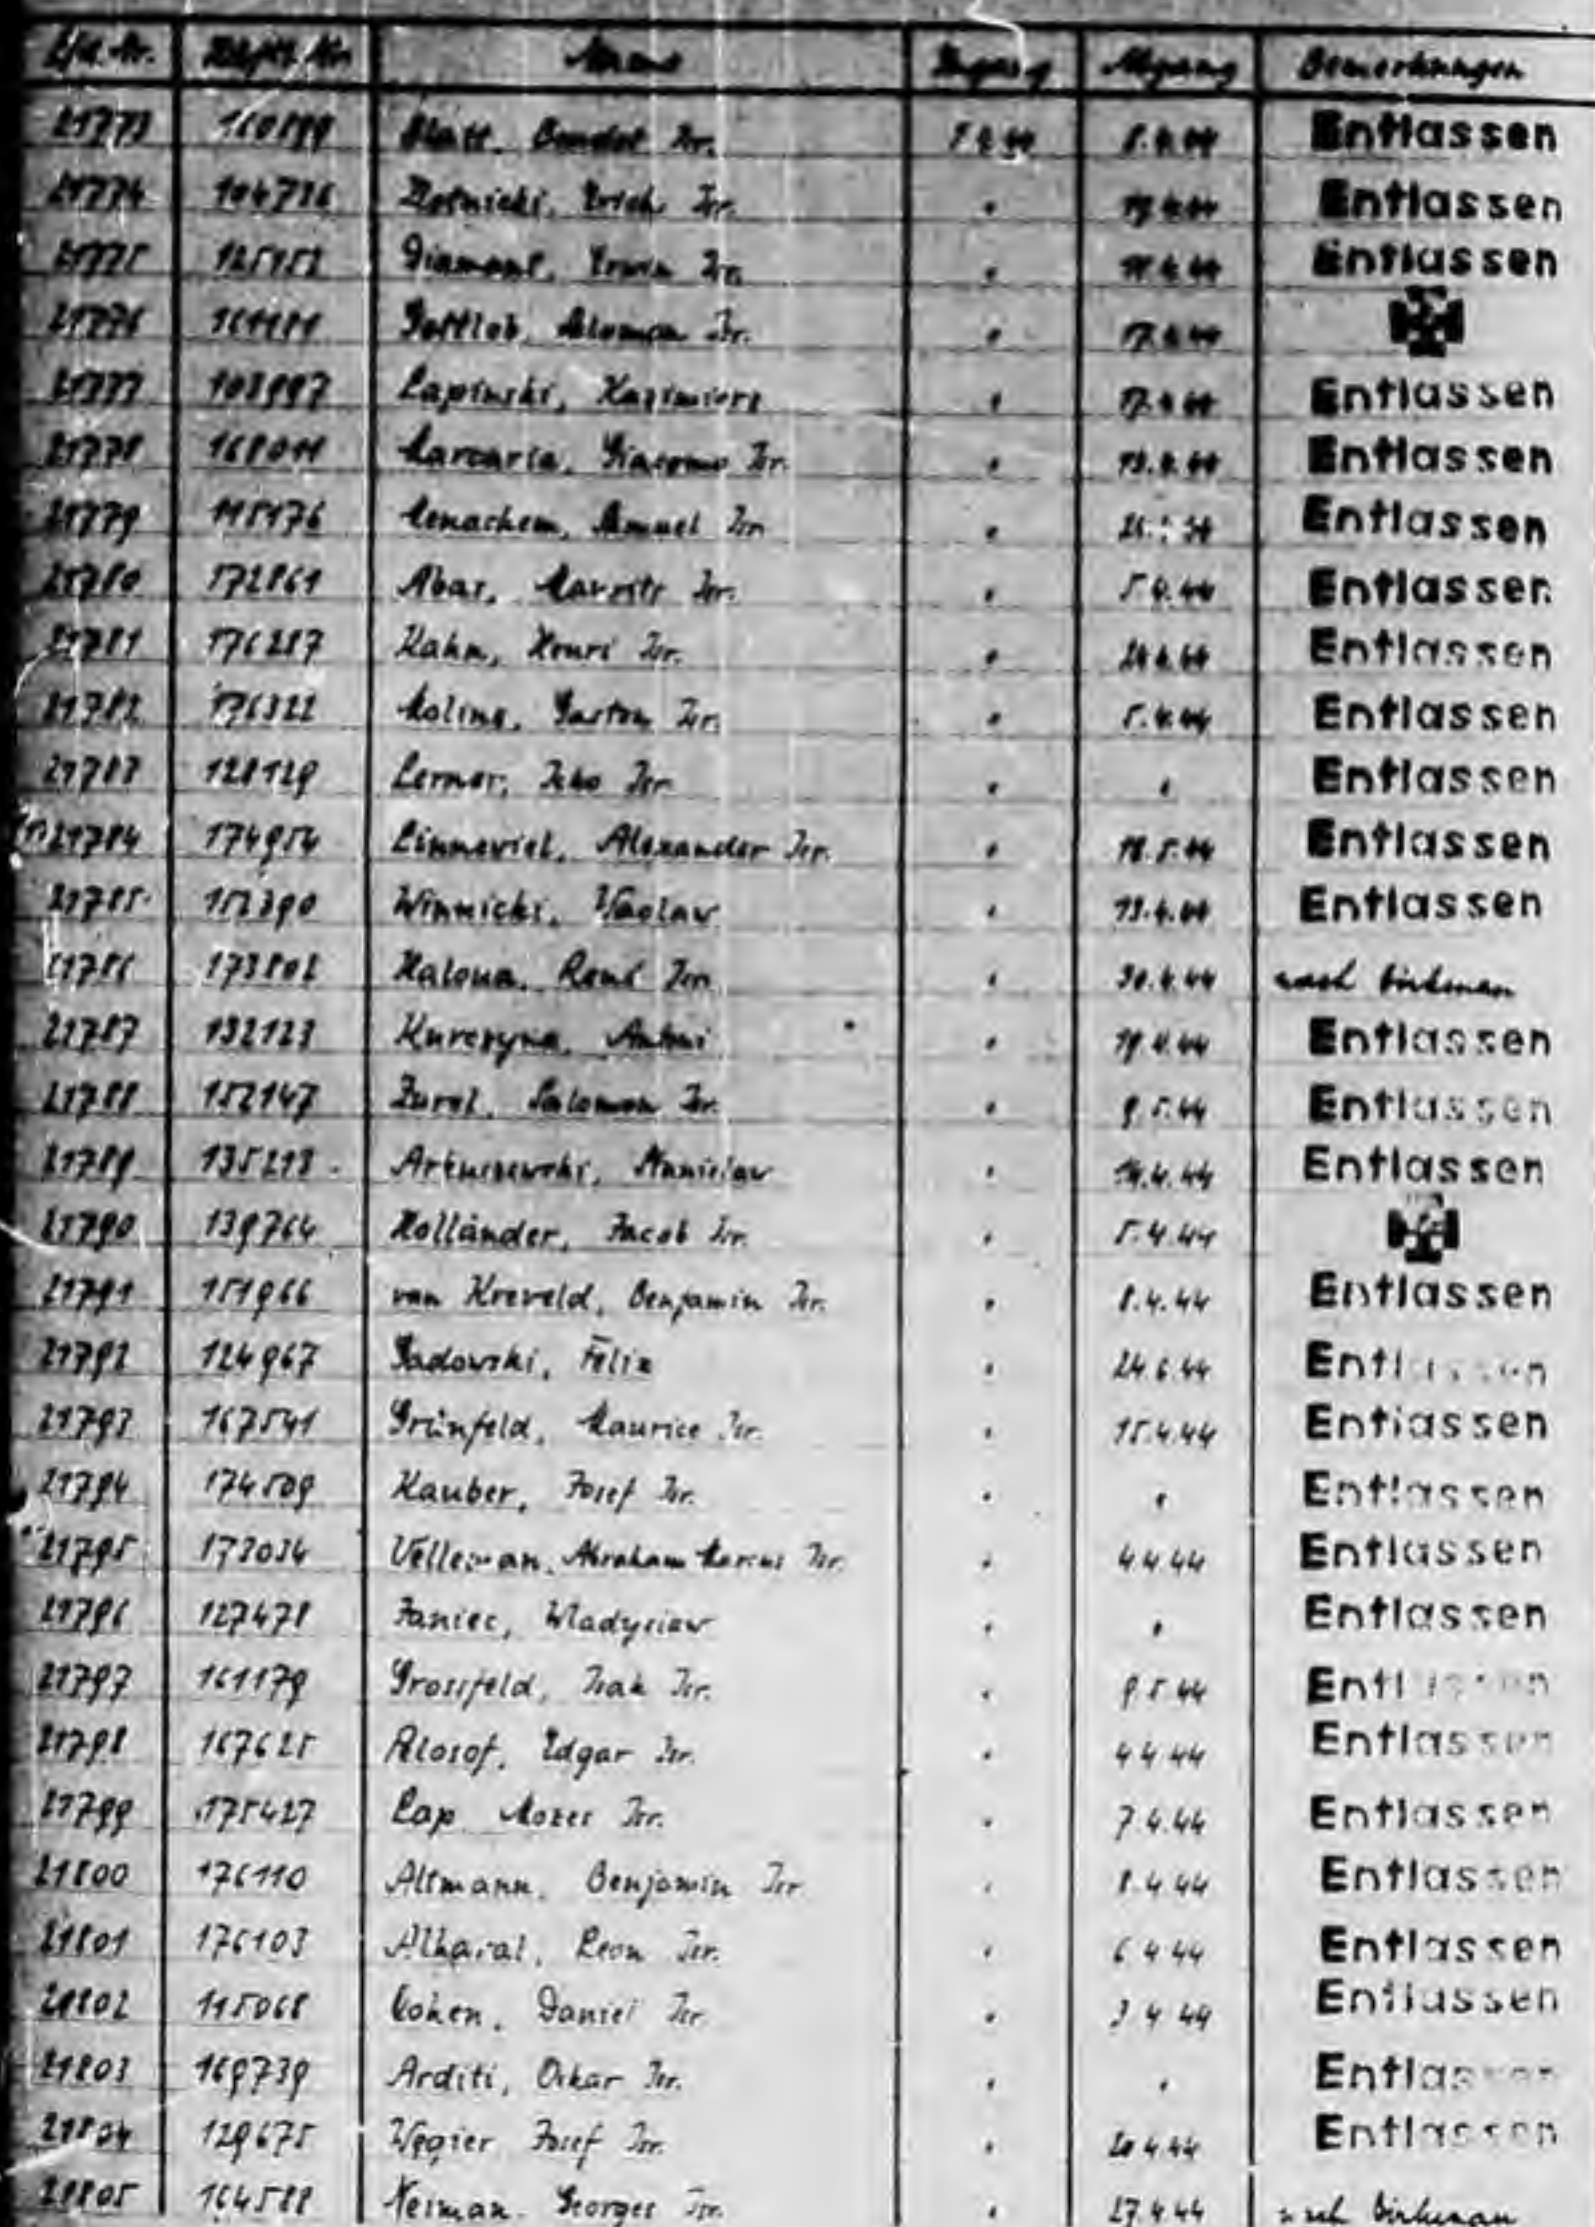 Lfd. Nr. Häftl. Nr. Name Zugang Abgang Bemerkungen
21773 160899 Blatt, Isr. 5.4.44 8.4.44 Entlassen
21774 104736 Zlotnicki, Erich Isr. " Entlassen
21775 125152 Diamant, Erwin Isr. " Entlassen
21776 161181 Gottlob, Salomon Isr. " 17.4.44
21777 103997 Lapinski, Kazimierz " 17.4.44 Entlassen
21778 168011 Marcaria, Giacomo Isr. " 13.4.44 Entlassen
21779 115176 Menachem, Samuel Isr. " Entlassen
21780 172861 Abas, Mauritz Isr. " 5.4.44 Entlassen
21781 176287 Kahn, Henri Isr. " 24.4.44 Entlassen
21782 176322 Molina, Gaston Isr. " 5.4.44 Entlassen
21783 128129 Lerner, Isr. " " Entlassen
21784 174954 Linneviel, Alexander Isr. " 18.5.44 Entlassen
21785 152390 Winnicki, Waclaw " 13.4.44 Entlassen
21786 173802 Haloua, René Isr. " 30.4.44 nach Birkenau
21787 132123 Kurczyna, Antoni " 19.4.44 Entlassen
21788 152147 Zurel, Salomon Isr. " 9.5.44 Entlassen
21789 135213 Artuszewski, Stanislaw " 14.4.44 Entlassen
21790 139764 Holländer, Jacob Isr. " 5.4.44
21791 151966 van Kreveld, Benjamin Isr. " 8.4.44 Entlassen
21792 124967 Sadowski, Felix " 24.6.44 Entlassen
21793 167541 Grünfeld, Maurice Isr. " 15.4.44 Entlassen
21794 174509 Kauber, Josef Isr. " " Entlassen
21795 173034 Velleman, Abraham Marcus Isr. " 4.4.44 Entlassen
21796 127478 Janiec, Wladyslaw " " Entlassen
21797 161179 Grossfeld, Isak Isr. " 9.5.44 Entlassen
21798 167625 Pelosof, Edgar Isr. " 4.4.44 Entlassen
21799 175427 Lap Mozes Isr. " 7.4.44 Entlassen
21800 176110 Altmann, Benjamin Isr. " 8.4.44 Entlassen
21801 176103 Alharal, Leon Isr. " 6.4.44 Entlassen
21802 115068 Cohen, Daniel Isr. " 3.4.44 Entlassen
21803 169739 Arditi, Oskar Isr. " " Entlassen
21804 129675 Wegier Josef Isr. " 20.4.44 Entlassen
21805 164588 Neiman Georges Isr. " 27.4.44 nach Birkenau